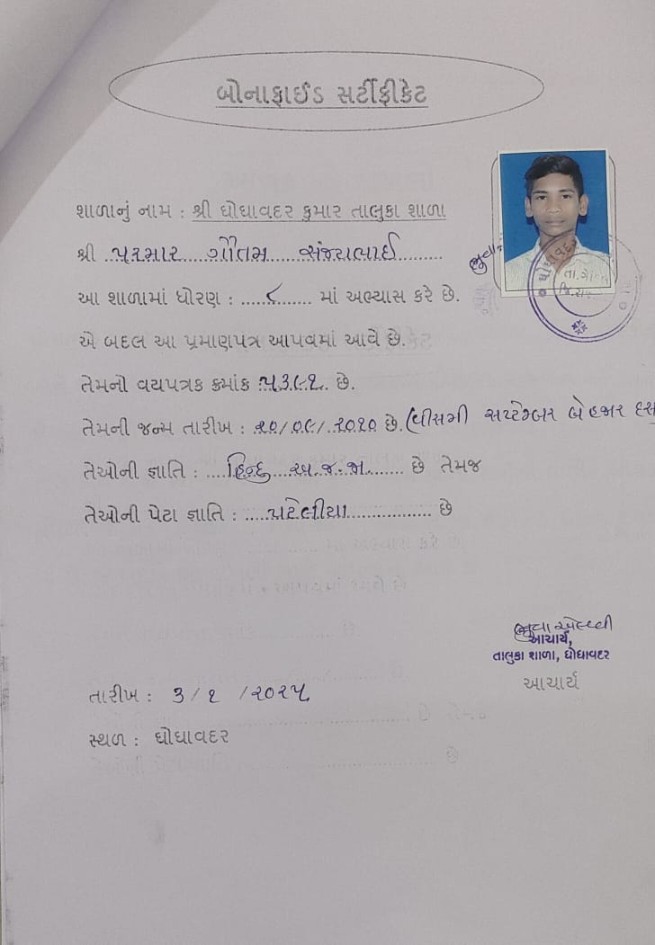 બોનાફાઈડ સર્ટીફીકેટ
શાળાનું નામ : શ્રી ઘોઘાવદર કુમાર તાલુકા શાળા
શ્રી પરમાર ગૌતમ સંજયભાઈ
આ શાળામાં ધોરણ : ૮ માં અભ્યાસ કરે છે.
એ બદલ આ પ્રમાણપત્ર આપવમાં આવે છે.
તેમનો વયપત્રક ક્રમાંક ૫૩૯૧ છે.
તેમની જન્મ તારીખ : ૨૦/૦૯/૨૦૧૦ છે. (વીસમી સપ્ટેમ્બર બે હજાર દસ
તેઓની જ્ઞાતિ : હિન્દુ અ.જ.જા. છે તેમજ
તેઓની પેટા જ્ઞાતિ : પટેલીયા છે
આચાર્ય,
તાલુકા શાળા, ઘોઘાવદર
આચાર્ય
તારીખ : ૩/૧/૨૦૨૫
સ્થળ : ઘોઘાવદર